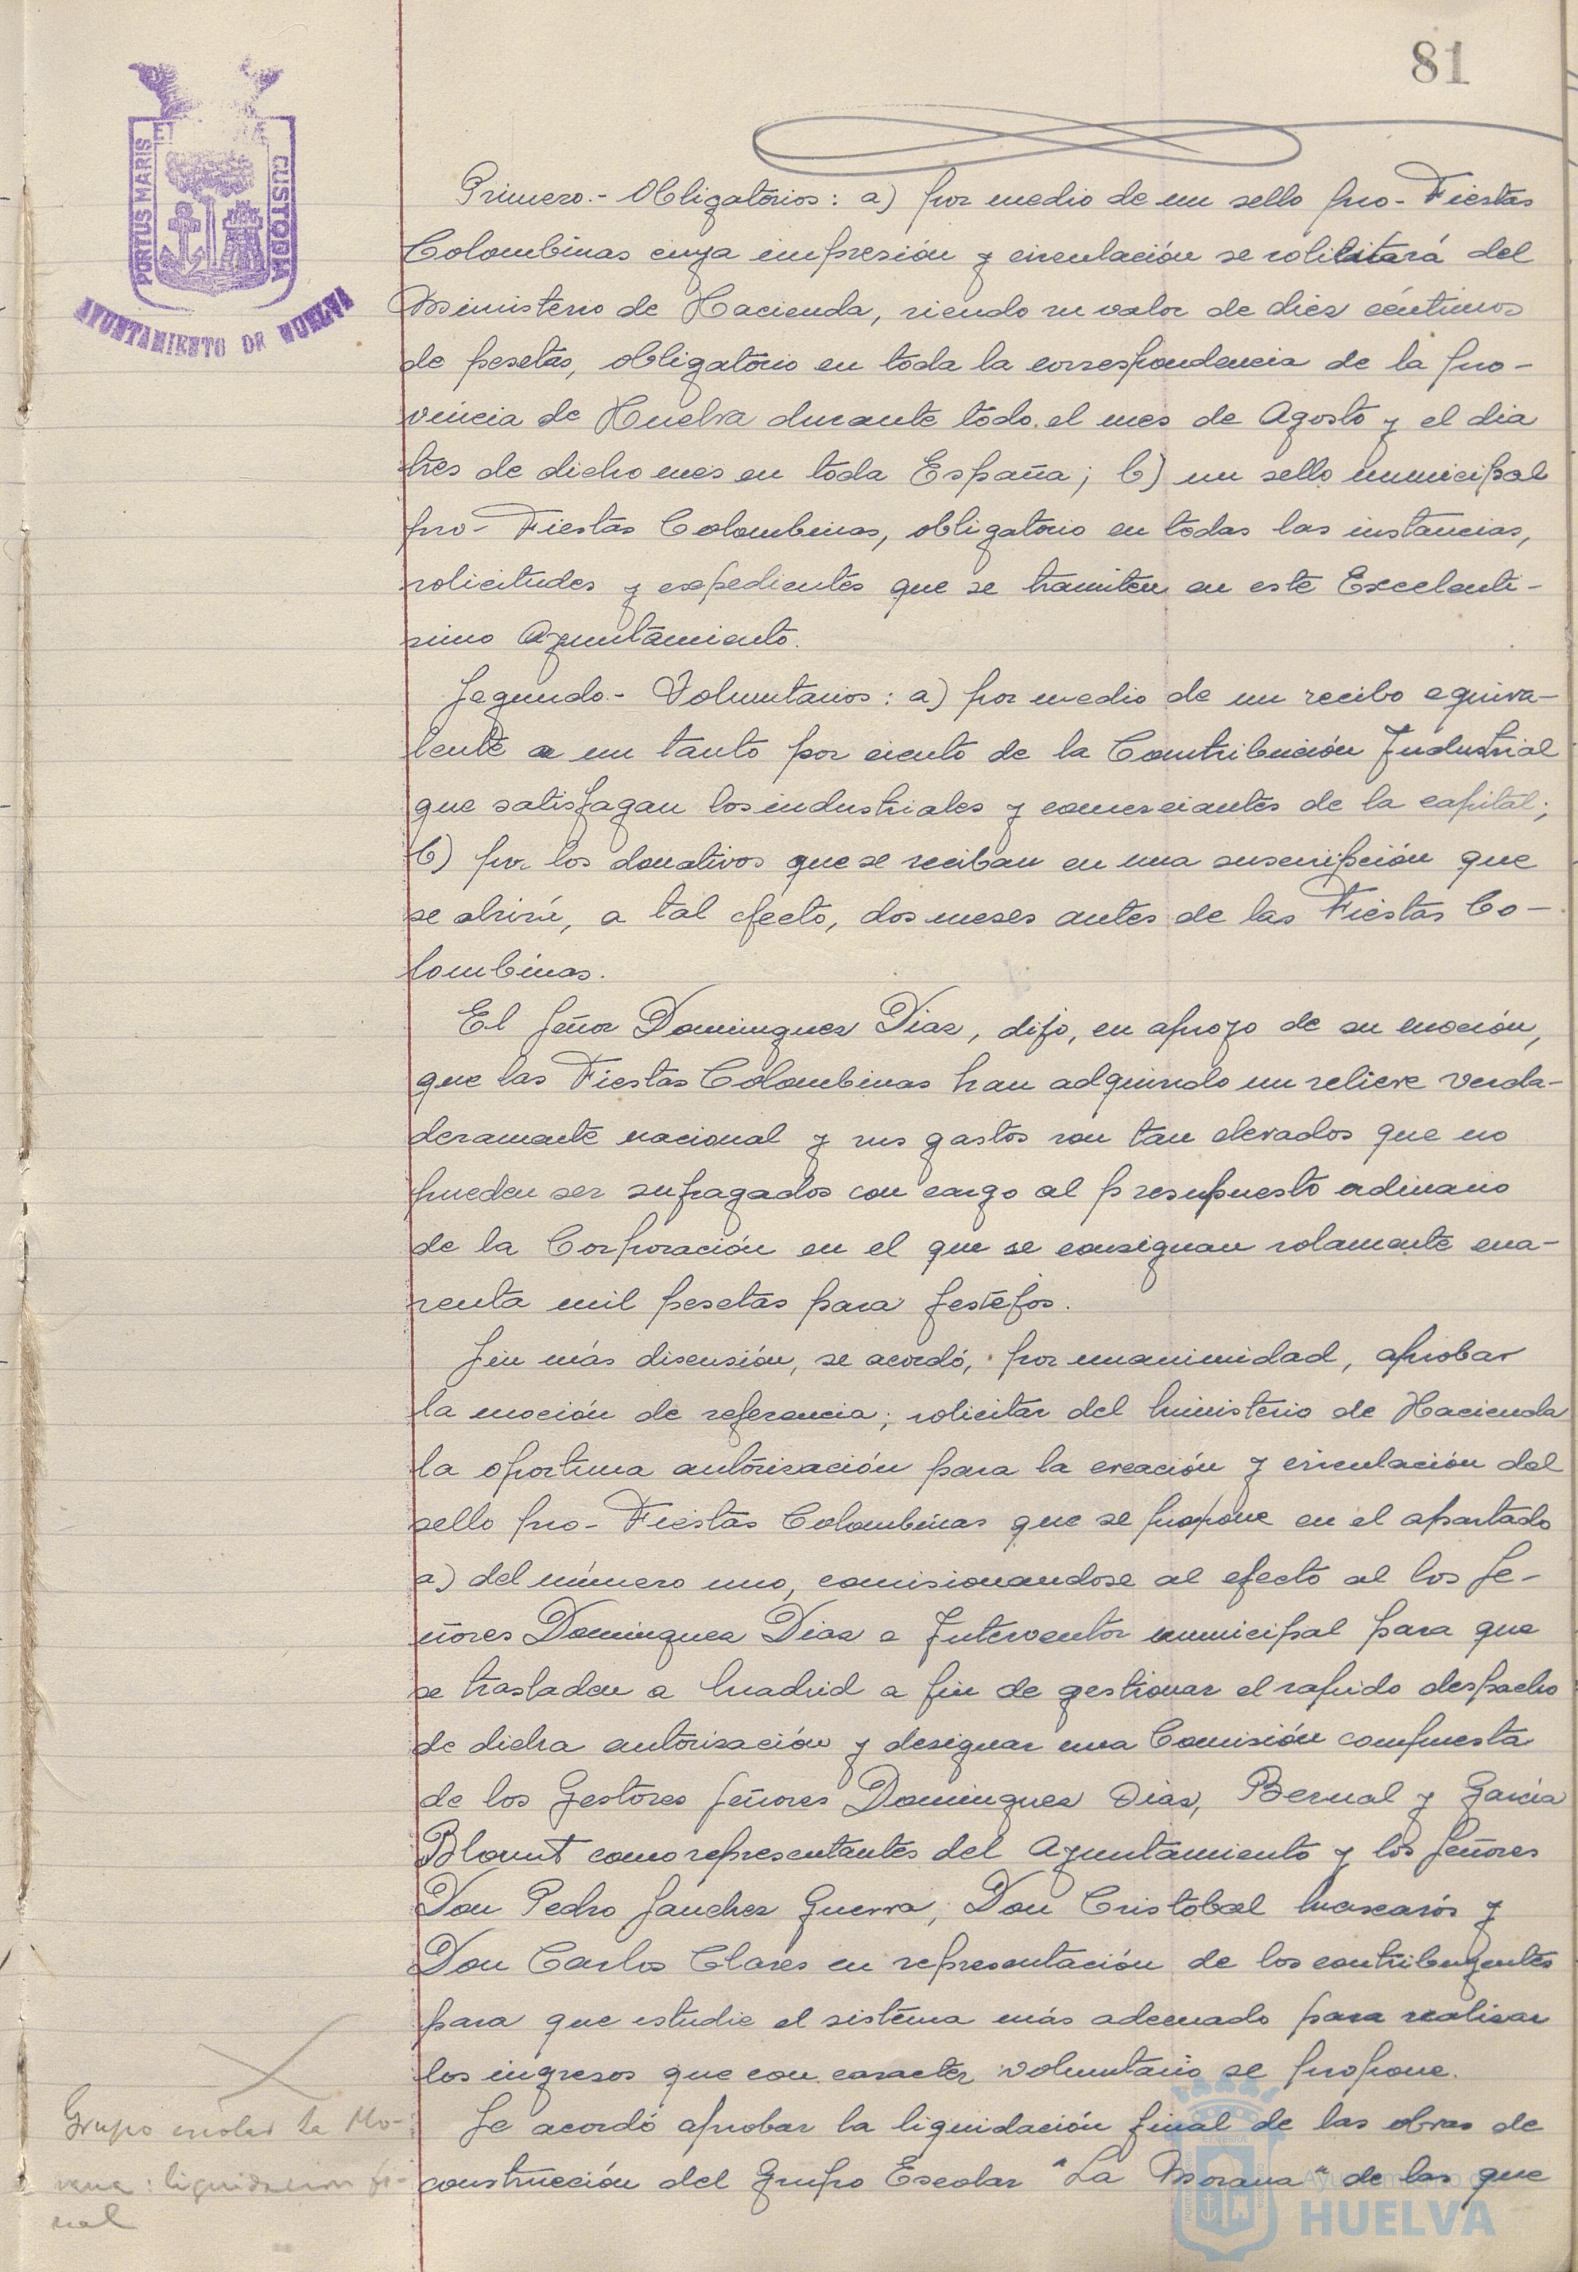 81
PORTUS MARIS
ET
CUSTODIA
AYUNTAMIENTO DE HUELVA
Primero.- Obligatorios: a) por medio de un sello pro-Fiestas
Colombinas cuya impresión y circulación se solicitará del
Ministerio de Hacienda, siendo su valor de diez céntimos
de pesetas, obligatorio en toda la correspondencia de la pro-
vincia de Huelva durante todo el mes de Agosto y el dia
tres de dicho mes en toda España; b) un sello municipal
pro-Fiestas Colombinas, obligatorio en todas las instancias,
solicitudes y expedientes que se tramiten en este Excelenti-
simo Ayuntamiento.
Segundo.- Voluntarios: a) por medio de un recibo equiva-
lente a un tanto por ciento de la Contribución Industrial
que satisfagan los industriales y comerciantes de la capital;
b) por los donativos que se reciban en una suscripción que
se abrirá, a tal efecto, dos meses antes de las Fiestas Co-
lombinas.
El Señor Dominguez Diaz, dijo, en apoyo de su moción,
que las Fiestas Colombinas han adquirido un relieve verda-
deramente nacional y sus gastos son tan elevados que no
pueden ser sufragados con cargo al presupuesto ordinario
de la Corporación en el que se consignan solamente cua-
renta mil pesetas para festejos.
Sin más discusión, se acordó, por unanimidad, aprobar
la moción de referencia; solicitar del Ministerio de Hacienda
la oportuna autorización para la creación y circulación del
sello pro-Fiestas Colombinas que se propone en el apartado
a) del número uno, comisionandose al efecto al los Se-
ñores Dominguez Diaz e Interventor municipal para que
se trasladen a Madrid a fin de gestionar el rapido despacho
de dicha autorización y designar una Comisión compuesta
de los Gestores Señores Dominguez Diaz, Bernal y Garcia
Blount como representantes del Ayuntamiento y los Señores
Don Pedro Sanchez Guerra, Don Cristobal Mascarós y
Don Carlos Clares en representación de los contribuyentes
para que estudie el sistema más adecuado para realizar
los ingresos que con caracter voluntario se propone.
Grupo escolar La Mo-
rana: liquidacion fi-
nal
Se acordó aprobar la liquidación final de las obras de
construcción del Grupo Escolar "La Morana" de las que
Ayuntamiento de
HUELVA